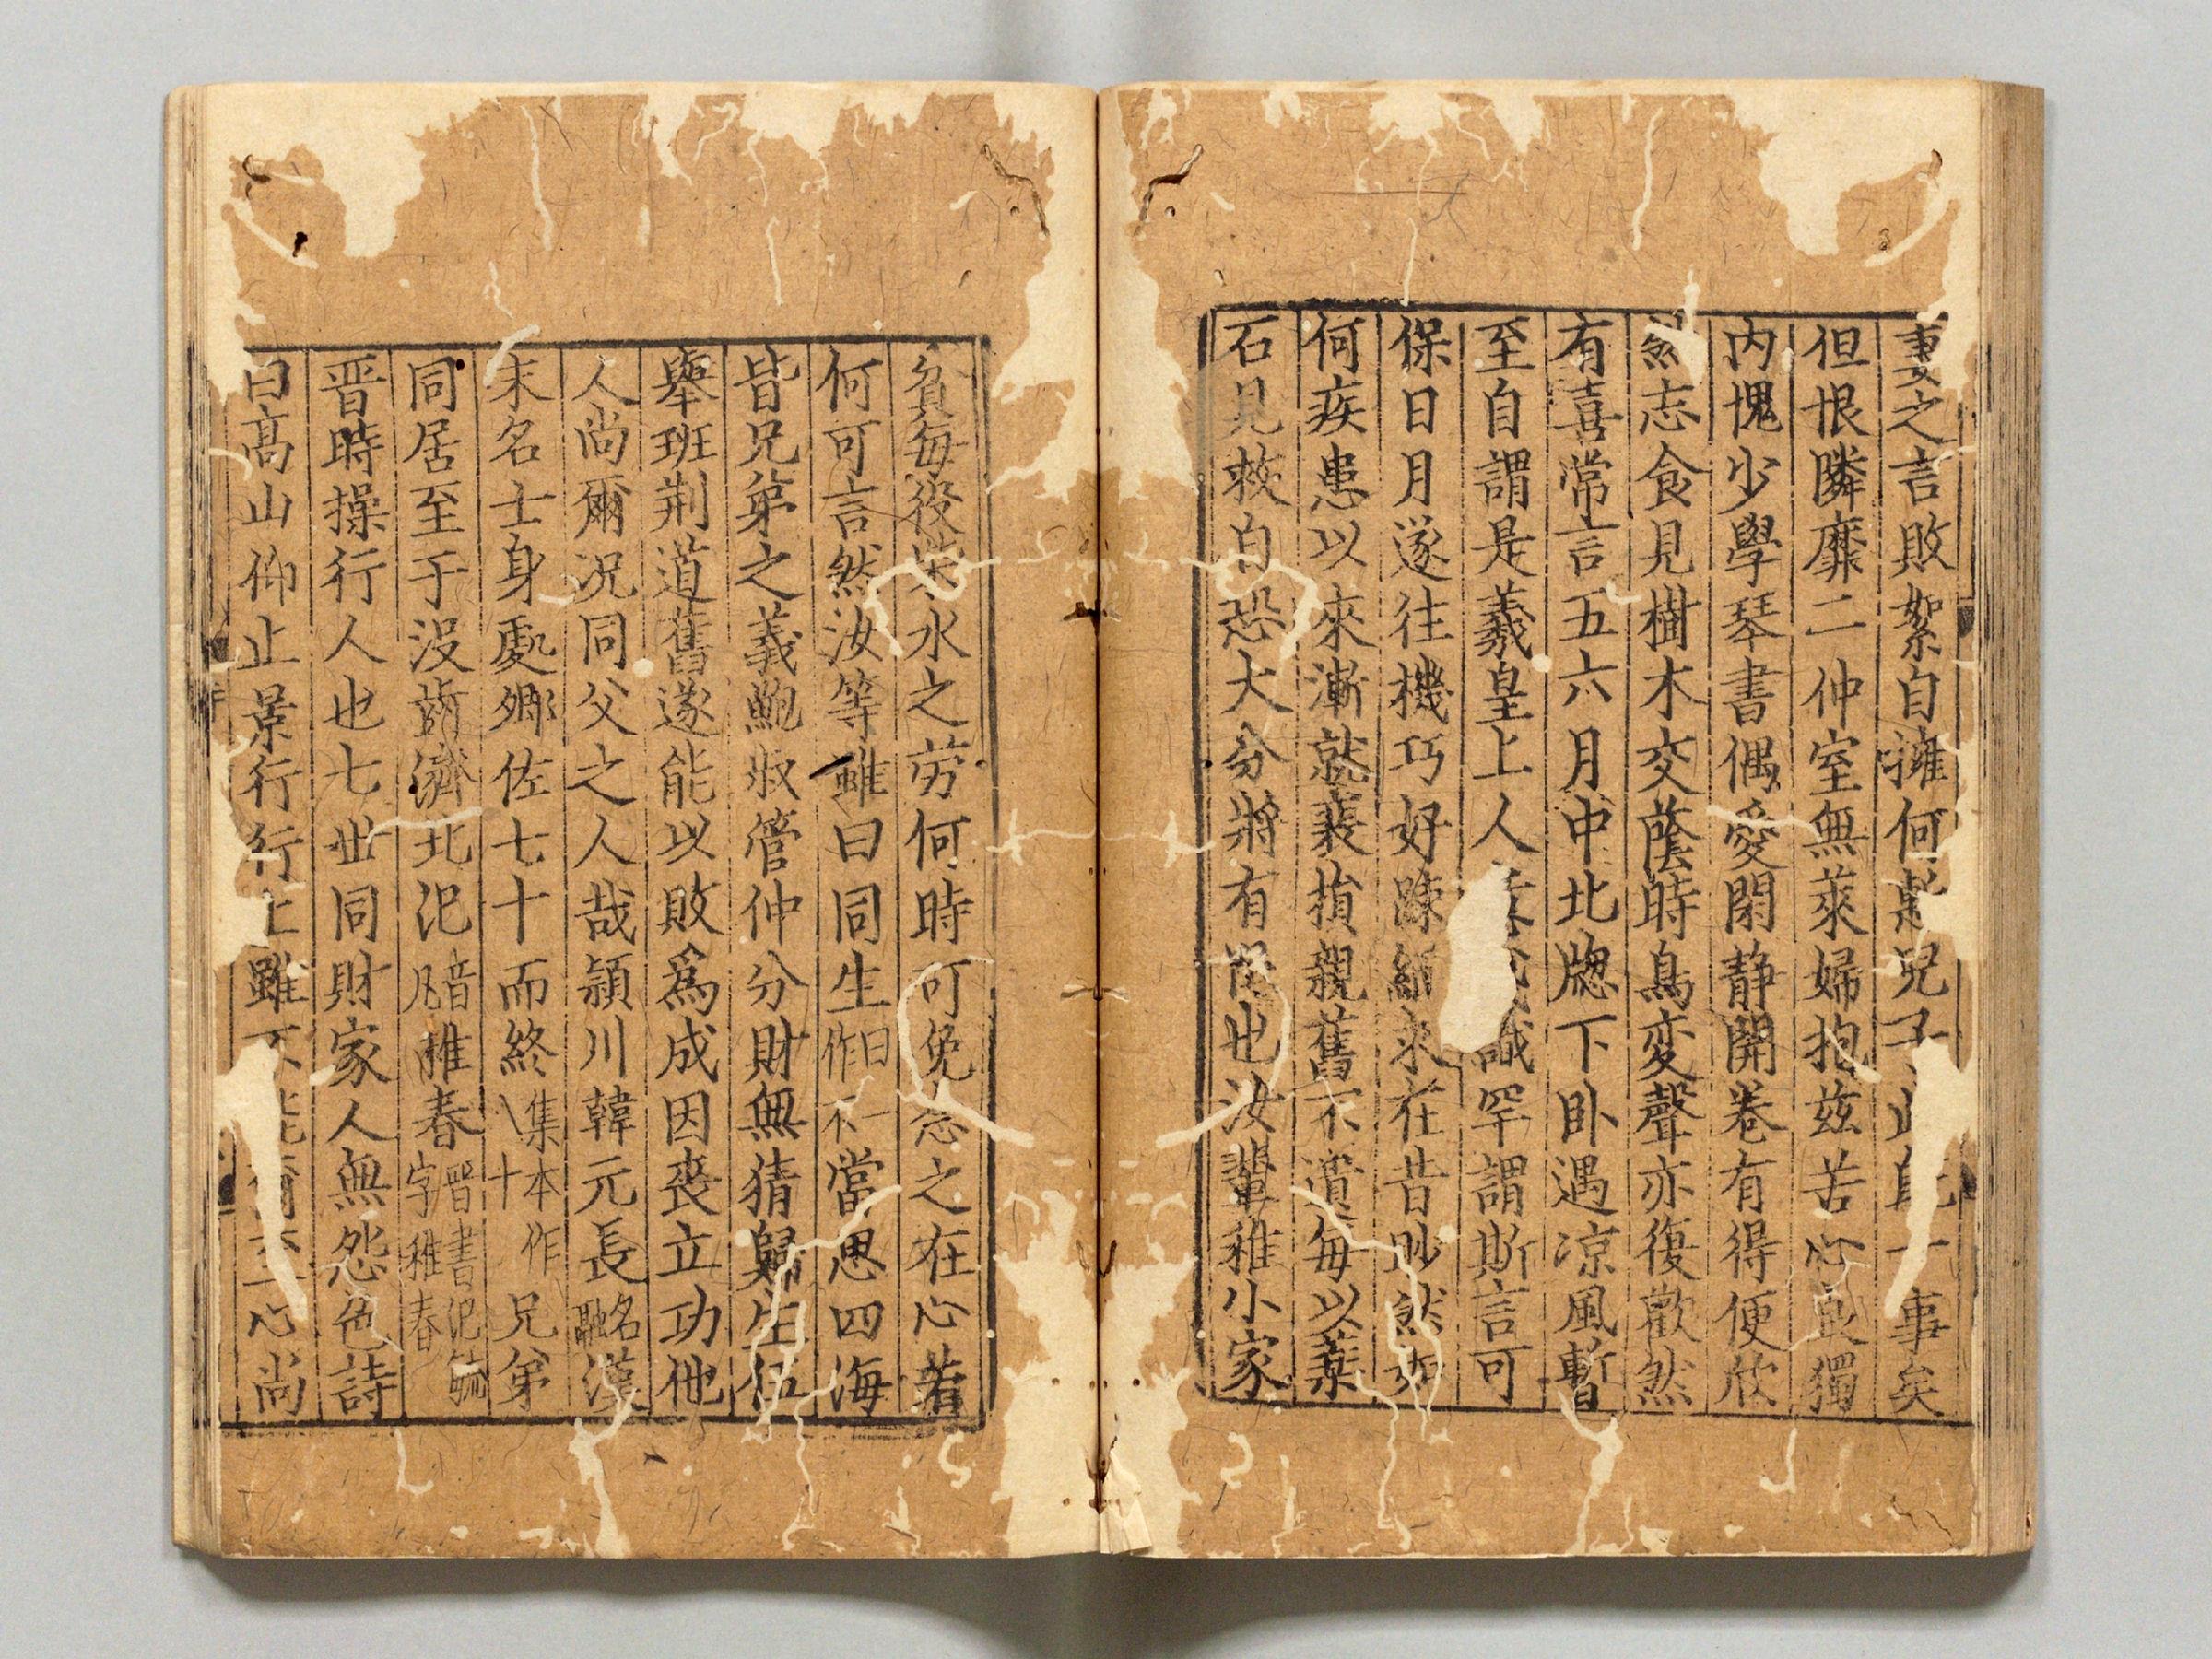 妻之言敗絮自擁何慙兒子此旣一事矣
但恨隣靡二仲室無萊婦抱玆苦心良獨
内愧少學琴書偶愛閑静開卷有得便欣
然忘食見樹木交蔭時鳥変聲亦復歡然
有喜常言五六月中北牕下卧遇凉風暫
至自謂是羲皇上人識罕謂斯言可
保日月遂往機巧好踈緬求在昔眇然如
何疾患以來漸就衰損親舊不遺每以藥
石見救自恐大分將有限也汝輩稚小家
貧每役柴水之労何時可免念之在心若
何可言然汝等雖曰同生曰一作不當思四海
皆兄弟之義鮑叔管仲分財無猜歸生伍
舉班荆道舊遂能以敗爲成因喪立功他
人尚爾况同父之人哉潁川韓元長名融漢
末名士身處卿佐七十而終集本作八十兄弟
同居至于没齒濟北氾音凡稚春晋書氾毓字稚春
晋時操行人也七世同財家人無怨色詩
曰高山仰止景行行止雖不能爾至心尚